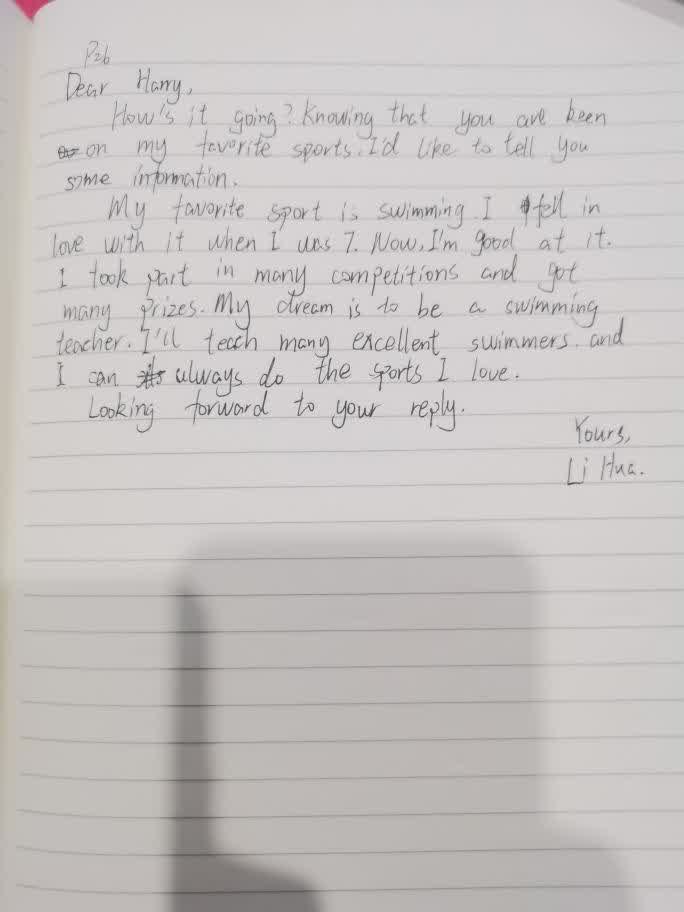 P26
Dear Harry,
How's it going? Knowing that you are been
on my favorite sports. I'd like to tell you
some information.
My favorite sport is swimming. I fell in
love with it when I was 7. Now, I'm good at it.
I took part in many competitions and got
many prizes. My dream is to be a swimming
teacher. I'll teach many excellent swimmers. and
I can always do the sports I love.
Looking forward to your reply.
Yours,
Li Hua.